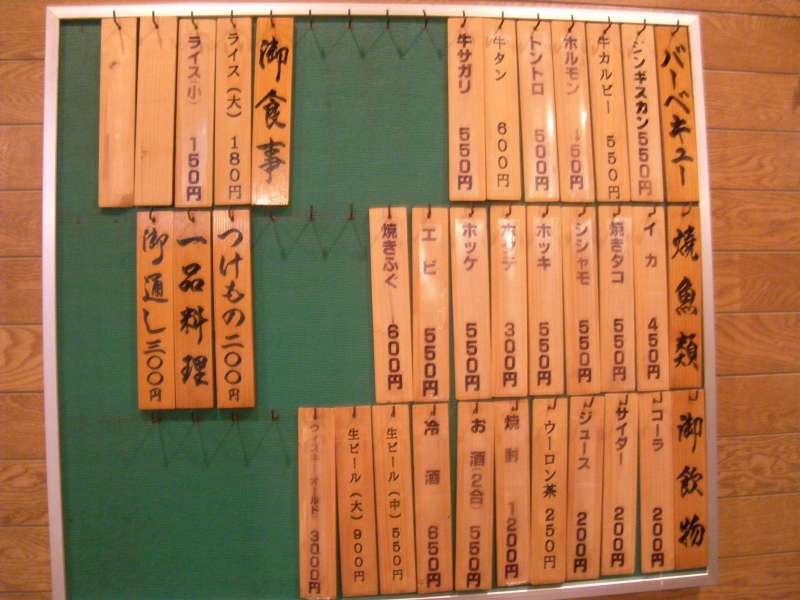 バーベキュー
ジンギスカン 550円
牛カルビー 550円
ホルモン 450円
トントロ 500円
牛タン 600円
牛サガリ 550円
御食事
ライス(大) 180円
ライス(小) 150円
焼魚類
イカ 450円
焼きタコ 550円
シシャモ 550円
ホッキ 550円
ホタテ 300円
ホッケ 550円
エビ 550円
焼きふぐ 600円
つけもの 二〇〇円
一品料理
御通し 三〇〇円
御飲物
コーラ 200円
サイダー 200円
ジュース 200円
ウーロン茶 250円
焼酎 1200円
お酒(2合) 550円
冷酒 650円
生ビール(中) 550円
生ビール(大) 900円
ウィスキーオールド 3000円